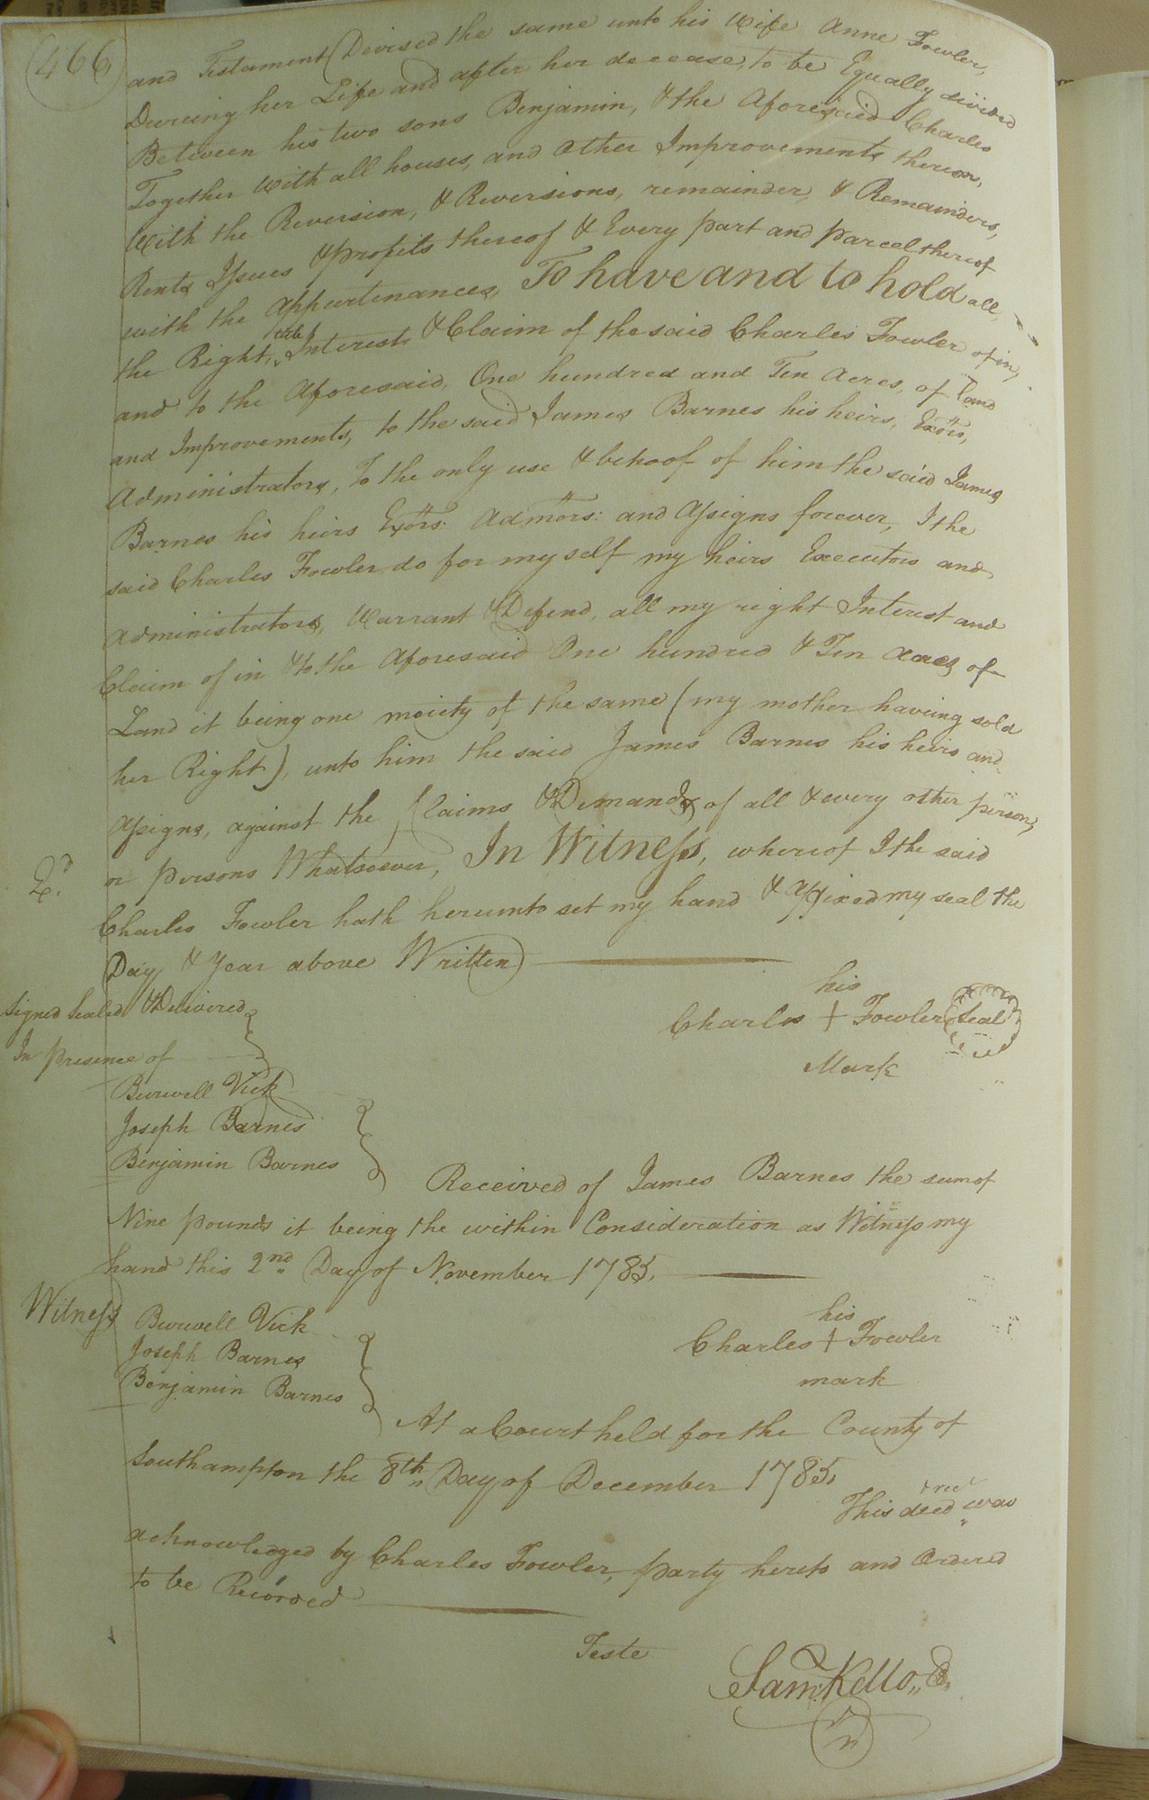 (466)
and Testament, Devised the same unto his Wife Anne Fowler,
Dureing her Life and after her decease, to be Equally divided
Between his two sons Benjamin, & the Aforesaid Charles
Together With all houses, and Other Improvements thereon,
With the Reversion, & Reversions, remainder, & Remainders,
Rents Issues & profits thereof & Every part and parcel thereof
with the Appurtenances, To have and to hold all,
the Right, title Interest & Claim of the said Charles Fowler of in,
and to the Aforesaid, One hundred and Ten Acres, of Land
and Improvements, to the said James Barnes his heirs, Exôrs,
Administrators, To the only use & behoof of him the said James
Barnes his heirs Exôrs: Admôrs: and Assigns forever, I the
said Charles Fowler do for my self my heirs Executors and
Administrators, Warrant & Defend, all my right Interest and
Claim of in & to the Aforesaid One hundred & Ten Acres of
Land it being one moiety of the same (my mother having sold
her Right) unto him the said James Barnes his heirs and
Assigns, against the Claims & Demands of all & every other person,
or persons Whatsoever, In Witness, whereof I the said
Charles Fowler hath hereunto set my hand & Affixed my seal the
Day, & Year above Written
his
Charles + Fowler Seal
Mark
Signed Sealed & Delivered
In presence of
Burwell Vick
Joseph Barnes
Benjamin Barnes
Received of James Barnes the sum of
Nine pounds it being the within Consideration as Witness my
hand this 2nd Day of November 1785.
Witness
Burwell Vick
Joseph Barnes
Benjamin Barnes
his
Charles + Fowler
mark
At a Court held for the County of
Southampton the 8th Day of December 1785.
This deed & rec was
acknowledged by Charles Fowler, party hereto and Ordered
to be Recorded
Teste
Sam. Kello